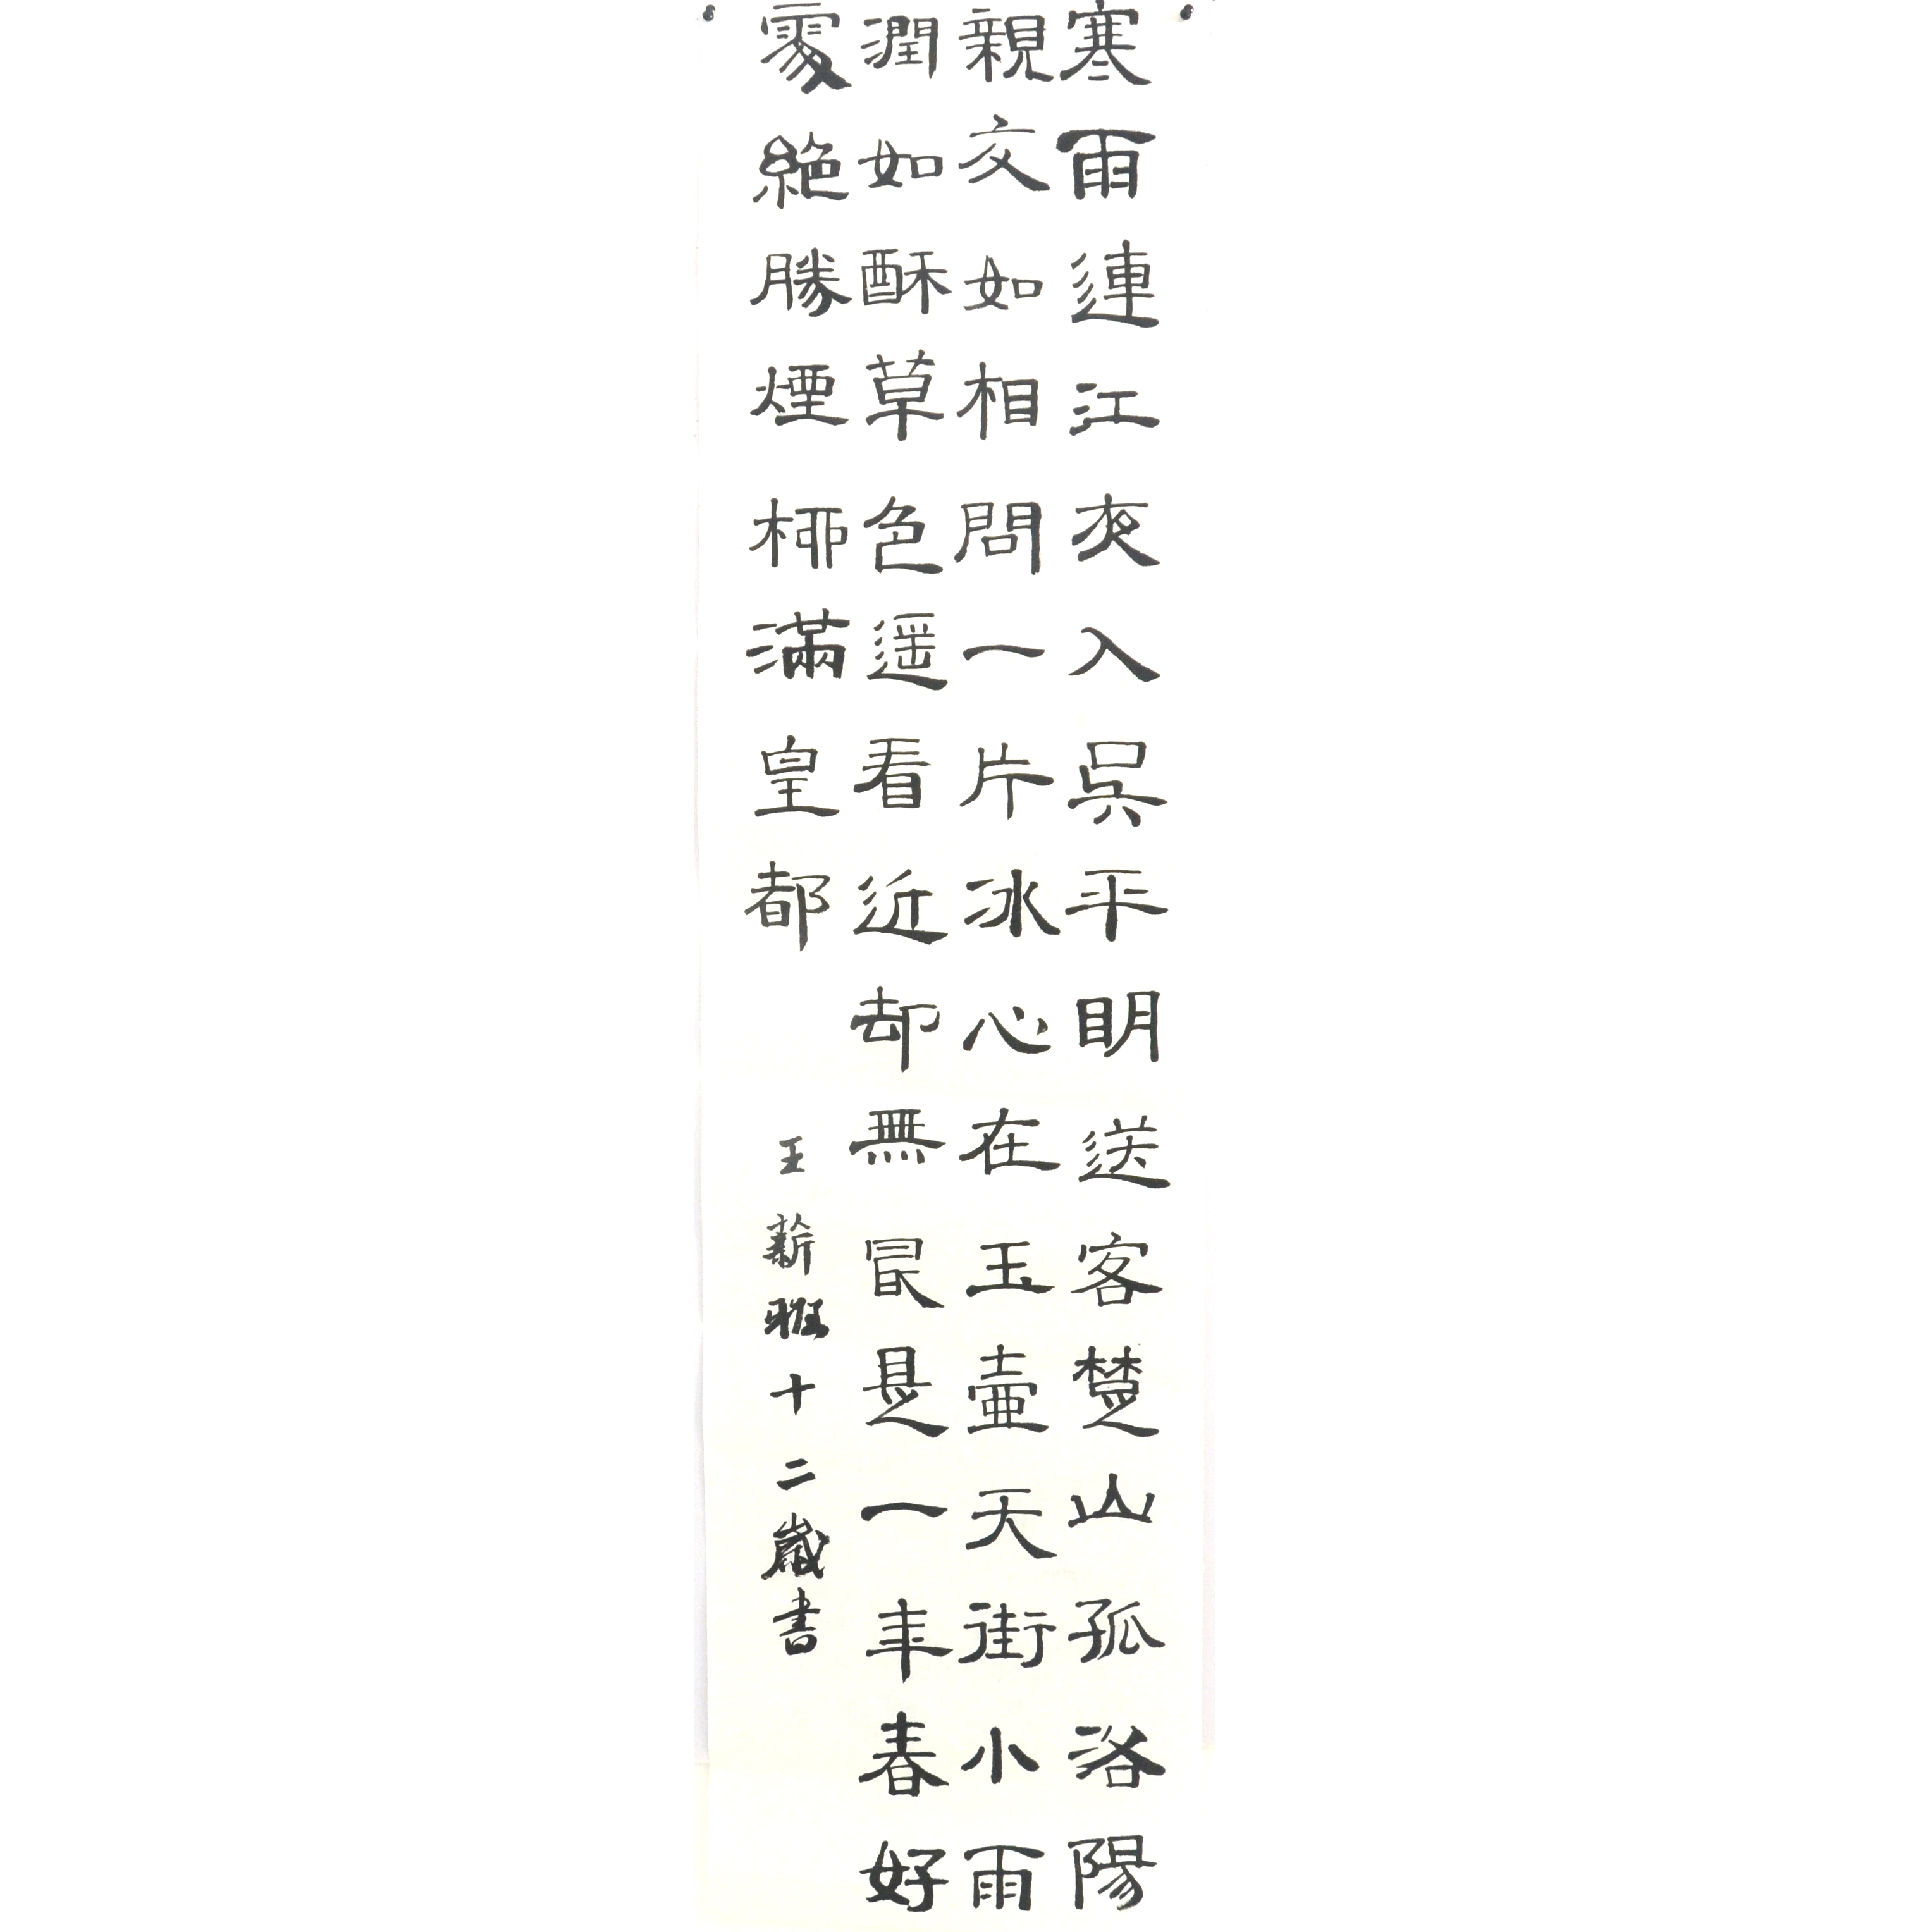 寒雨連江夜入吳平明送客楚山孤洛陽
親友如相問一片冰心在玉壺天街小雨
潤如酥草色遥看近却無冣是一年春好
處絶勝煙柳滿皇都
王薪雅十二歲書